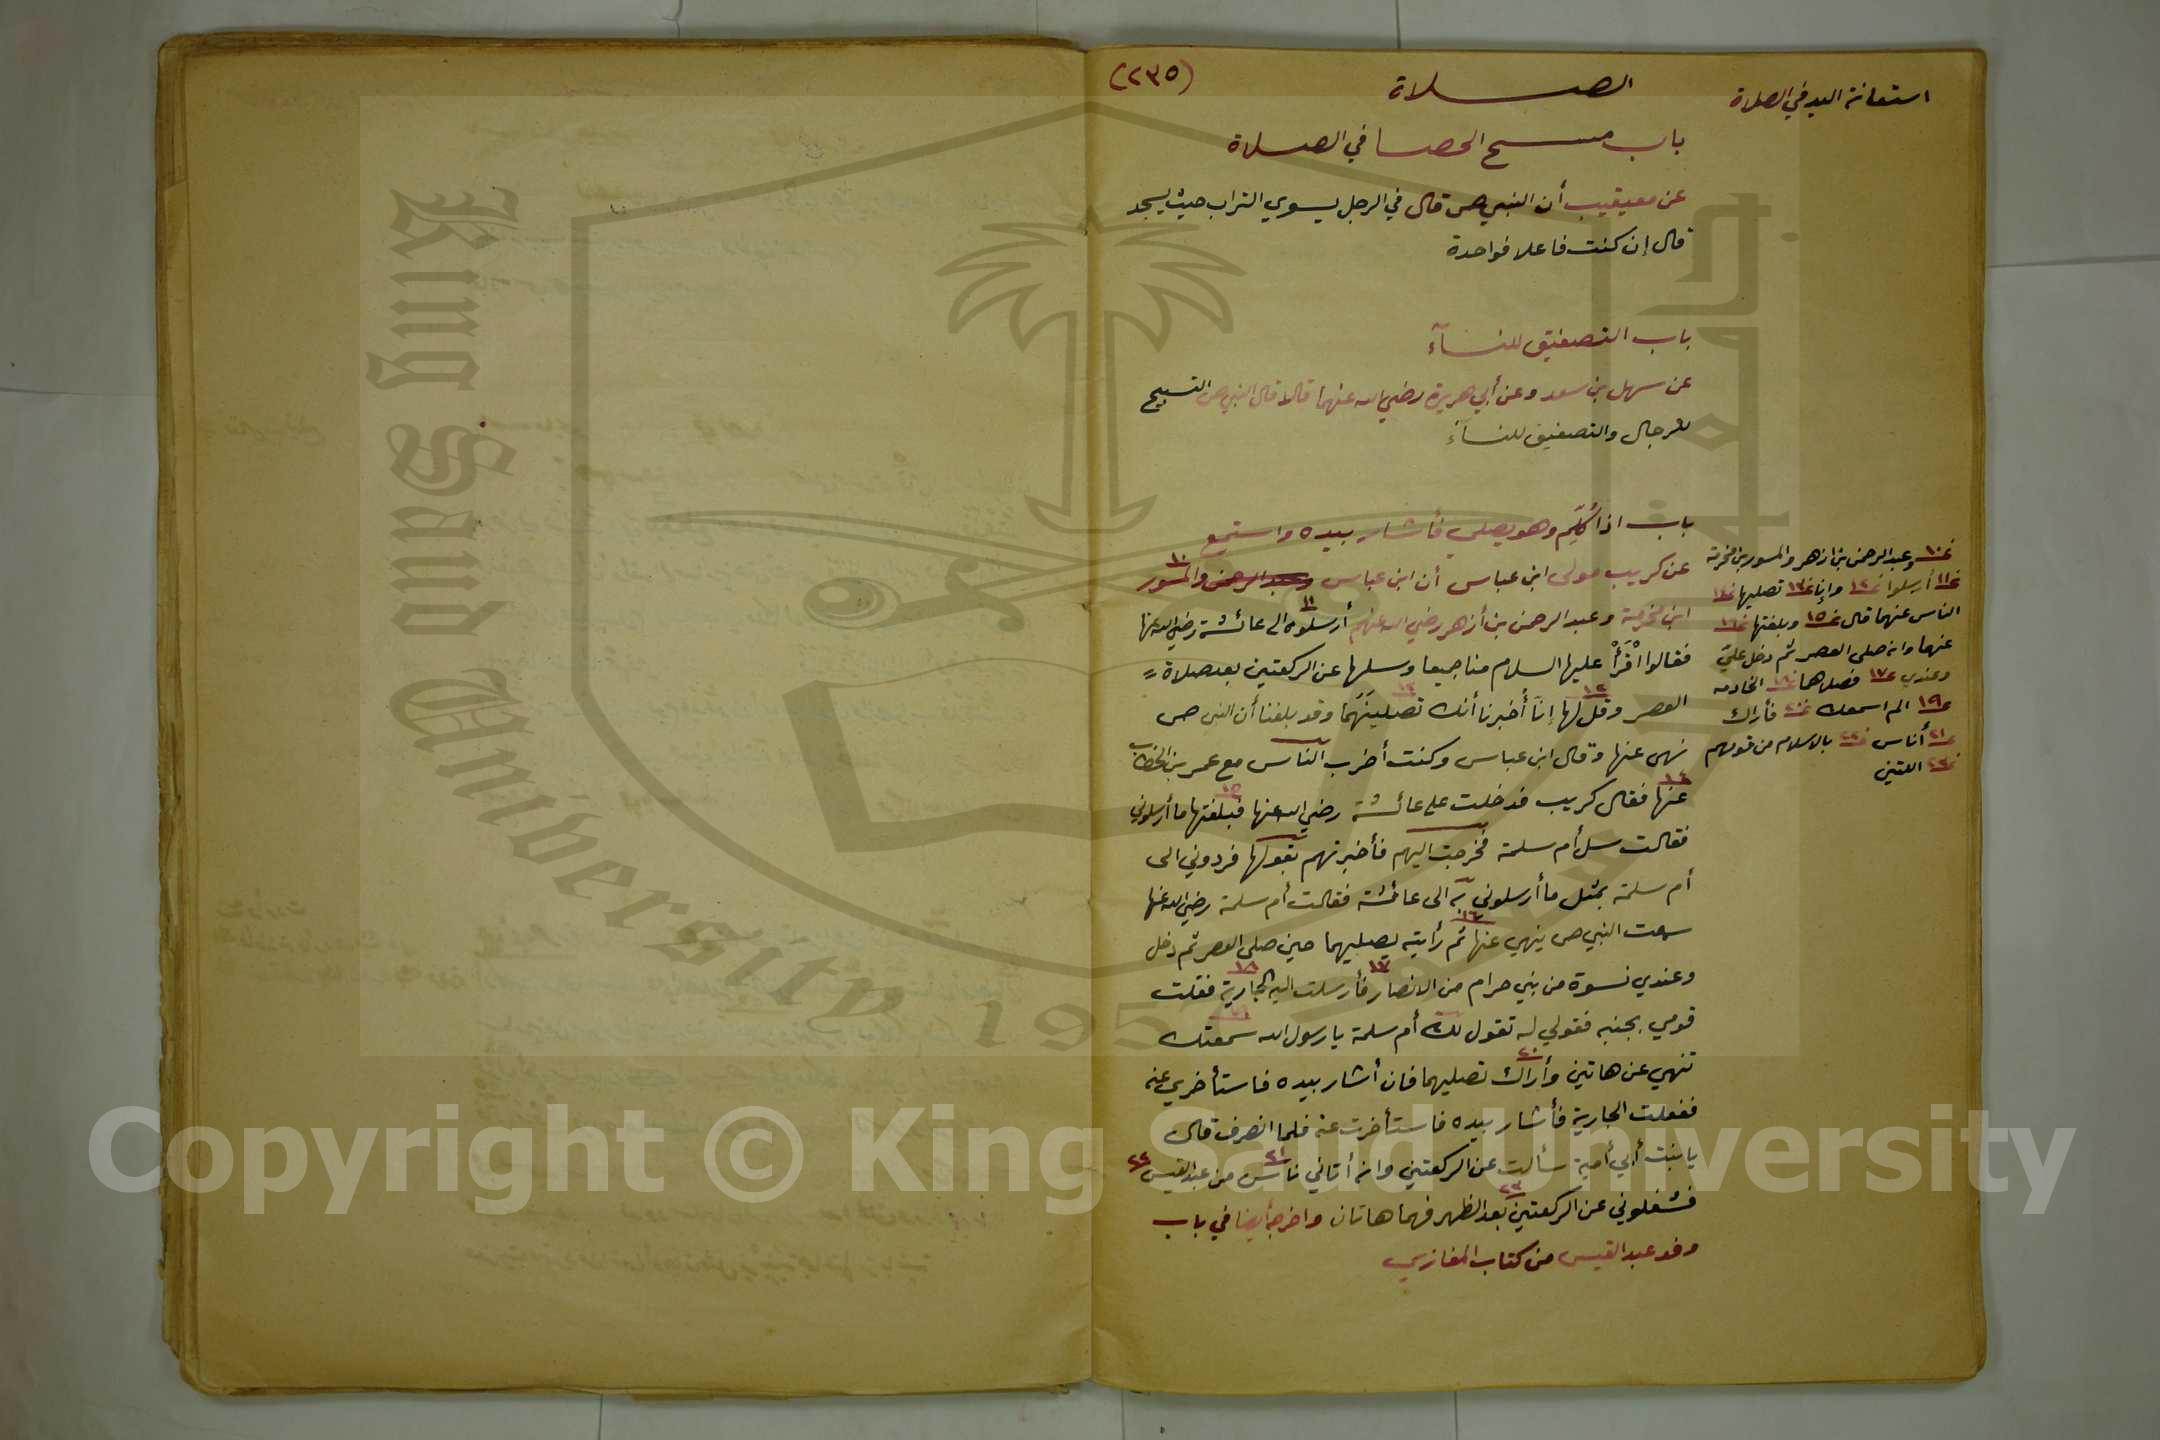 استعانة اليد في الصلاة
الصلاة
(٢٣٥)
باب مسح الحصا في الصلاة
عن معيقيب أن النبي ص قال في الرجل يسوي التراب حيث يسجد
قال إن كنت فاعلا فواحدة
باب التصفيق للنسآء
عن سهل بن سعد وعن أبي هريرة رضي الله عنهما قالا قال النبي ص التسبيح
للرجال والتصفيق للنسآء
باب اذا كُلِّم وهو يصلي فأشار بيده واستمع
عن كريب مولى ابن عباس أن ابن عباس وعبد الرحمن والمسور ١٠
ابن مخرمة وعبد الرحمن بن أزهر رضي الله عنهم أرسلوه ١١ الى عائشة رضي الله عنها
فقالوا اقْرَأْ عليها السلام منا جميعا وسلها عن الركعتين بعد صلاة =
العصر وقل لها إنّا ١٢ أُخبرنا أنك تصلينَهُما ١٣ وقد بلغنا أن النبي ص
نهى عنها وقال ابن عباس وكنت أضرب الناس مع عمر بن الخطاب
عنها ١٤ فقال كريب فدخلت على عائشة رضي الله عنها فبلغتها ١٥ ما أرسلوني
فقالت سل أم سلمة فخرجت اليهم فأخبرتهم بقولها فردوني الى
أم سلمة بمثل ما أرسلوني به الى عائشة فقالت أم سلمة رضي الله عنها
سمعت النبي ص ينهى عنها ١٦ ثم رأيته يصليهما حين صلى العصر ثم دخل
وعندي نسوة من بني حرام من الانصار ١٧ فأرسلت اليه الجارية ١٨ فقلت
قومي بجنبه فقولي له تقول لك أم سلمة يا رسول الله سمعتك ١٩
تنهى عن هاتين وأراك ٢٠ تصليهما فان أشار بيده فاستأخري عنه
ففعلت الجارية فأشار بيده فاستأخرت عنه فلما انصرف قال
يا بنت أبي أمية سألت عن الركعتين وانه أتاني ناس ٢١ من عبد القيس ٢٢
فشغلوني عن الركعتين ٢٣ بعد الظهر فهما هاتان واخرجه أيضا في باب
وفد عبد القيس من كتاب المغازي
نخ ١٠ وعبد الرحمن بن ازهر والمسور بن مخرمة
نخ ١١ أرسلوا نخ ١٢ وإنا نخ ١٣ تصليها نخ ١٤
الناس عنهما قال نخ ١٥ وبلغتها نخ ١٦
عنهما وانه صلى العصر ثم دخل عليّ
وعندي نخ ١٧ فصلاهما نخ ١٨ الخادم
نخ ١٩ الم اسمعك نخ ٢٠ فأراك
نخ ٢١ أناس نخ ٢٢ بالاسلام من قومهم
نخ ٢٣ اللتين
King Saud University
1957
Copyright © King Saud University